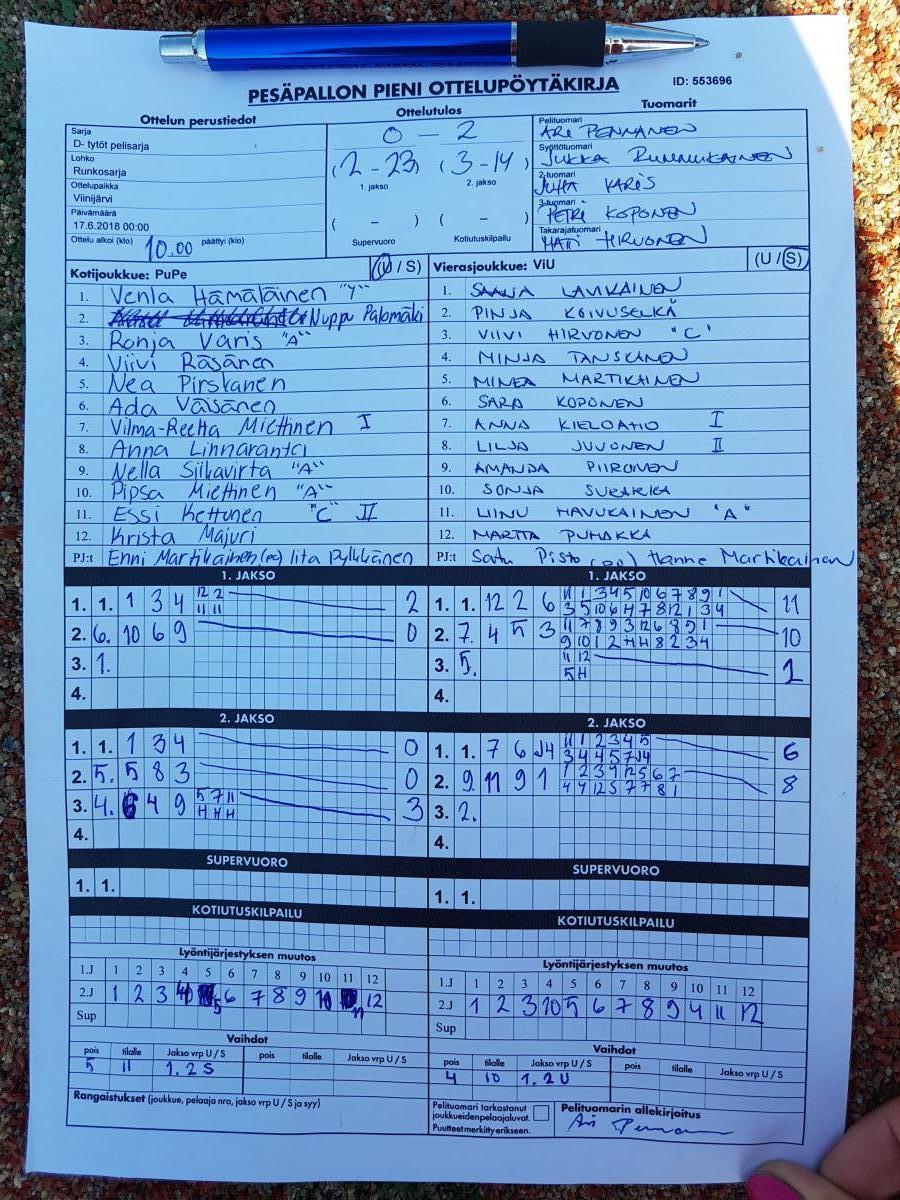 PESÄPALLON PIENI OTTELUPÖYTÄKIRJA
ID: 553696
Ottelun perustiedot
Sarja
D- tytöt pelisarja
Lohko
Runkosarja
Ottelupaikka
Viinijärvi
Päivämäärä
17.6.2018 00:00
Ottelu alkoi (klo) 10.00 päättyi (klo)
Ottelutulos
0 - 2
(2-23) (3-14)
1. jakso 2. jakso
( - ) ( - )
Supervuoro Kotiutuskilpailu
Tuomarit
Pelituomari
ARI PENNANEN
Syöttötuomari
JUKKA RUMMUKAINEN
2-tuomari
JUHA VARIS
3-tuomari
PETRI KOPONEN
Takarajatuomari
MATTI HIRVONEN
Kotijoukkue: PuPe (U / S)
1. Venla Hämäläinen "Y"
2. Nuppu Palomäki
3. Ronja Varis "A"
4. Viivi Räsänen
5. Nea Pirskanen
6. Ada Väisänen
7. Vilma-Reetta Miettinen I
8. Anna Linnarantci
9. Nella Siikavirta "A"
10. Pipsa Miettinen "A"
11. Essi Kettunen "C" II
12. Krista Majuri
PJ:t Enni Martikainen (pc) Iita Pylkkänen
Vierasjoukkue: ViU (U / S)
1. SAANA LAVIKAINEN
2. PINJA KOIVUSELKÄ
3. VIIVI HIRVONEN "C"
4. MINJA TANSKANEN
5. MINEA MARTIKAINEN
6. SARA KOPONEN
7. ANNA KIELOAHO I
8. LILJA JUVONEN II
9. AMANDA PIIRONEN
10. SONJA
11. LIINU HAVUKAINEN "A"
12. MARTTA PUHAKKA
PJ:t Satu Pisto Hanne Martikainen
1. JAKSO
1. 1. 1 3 4 12 2 2
11 11
2. 6. 10 6 9 0
3. 1.
4.
1. JAKSO
1. 1. 12 2 6 11 1 3 4 5 10 6 7 8 9 1 11
3 5 10 6 4 7 8 12 1 3 4
2. 7. 4 5 3 11 7 8 9 3 12 6 8 9 1 10
9 10 1 2 H H 8 2 3 4
3. 5. 11 12 1
5 H
4.
2. JAKSO
1. 1. 1 3 4 0
2. 5. 5 8 3 0
3. 4. 6 4 9 5 7 11 3
H H H
4.
2. JAKSO
1. 1. 7 6 J4 11 1 2 3 4 5 6
3 4 4 5 7 J4
2. 9. 11 9 1 1 2 3 9 12 5 6 7 8
4 9 12 5 7 7 8 1
3. 2.
4.
SUPERVUORO
1. 1.
SUPERVUORO
1. 1.
KOTIUTUSKILPAILU
KOTIUTUSKILPAILU
Lyöntijärjestyksen muutos
1.J 1 2 3 4 5 6 7 8 9 10 11 12
2.J 1 2 3 4 5 6 7 8 9 10 11 12
Sup
Vaihdot
pois tilalle Jakso vrp U / S pois tilalle Jakso vrp U / S
5 11 1. 2 S
Rangaistukset (joukkue, pelaaja nro, jakso vrp U / S ja syy)
Lyöntijärjestyksen muutos
1.J 1 2 3 4 5 6 7 8 9 10 11 12
2.J 1 2 3 10 5 6 7 8 9 4 11 12
Sup
Vaihdot
pois tilalle Jakso vrp U / S pois tilalle Jakso vrp U / S
4 10 1. 2 U
Pelituomari tarkastanut
joukkueiden pelaajaluvat.
Puutteet merkitty erikseen.
Pelituomarin allekirjoitus